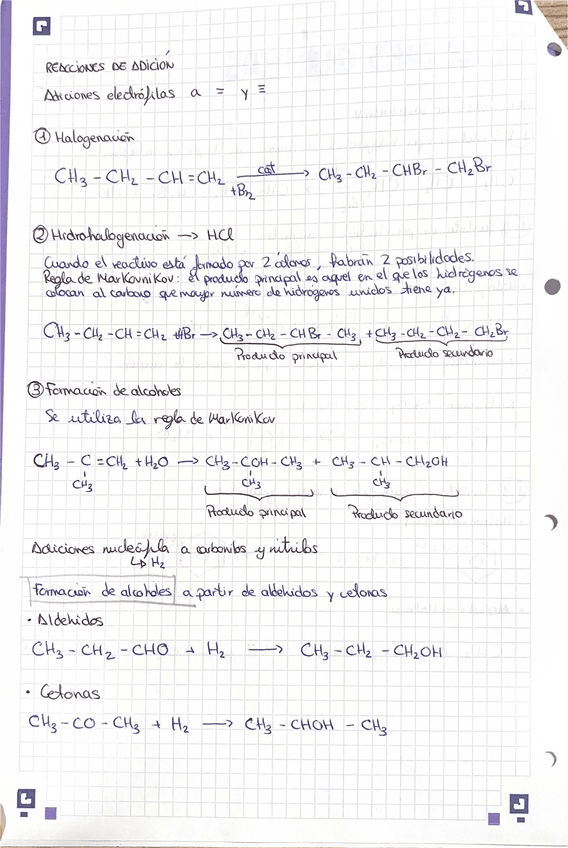 REACCIONES DE ADICIÓN
Adiciones electrófilas a = y ≡
① Halogenación
CH₃ - CH₂ - CH = CH₂ cat +Br₂ ⟶ CH₃ - CH₂ - CHBr - CH₂Br
② Hidrohalogenación ⟶ HCl
Cuando el reactivo está formado por 2 átomos, habrán 2 posibilidades.
Regla de Markovnikov: el producto principal es aquel en el que los hidrógenos se
colocan al carbono que mayor número de hidrógenos unidos tiene ya.
CH₃ - CH₂ - CH = CH₂ +HBr ⟶ CH₃ - CH₂ - CHBr - CH₃ + CH₃ - CH₂ - CH₂ - CH₂Br
Producto principal Producto secundario
③ Formación de alcoholes
Se utiliza la regla de Markonikov
CH₃ - C = CH₂ + H₂O ⟶ CH₃ - COH - CH₃ + CH₃ - CH - CH₂OH
CH₃ CH₃ CH₃
Producto principal Producto secundario
Adiciones nucleófila a carbonilos y nitrilos
↳ H₂
Formación de alcoholes a partir de aldehidos y cetonas
· Aldehidos
CH₃ - CH₂ - CHO + H₂ ⟶ CH₃ - CH₂ - CH₂OH
· Cetonas
CH₃ - CO - CH₃ + H₂ ⟶ CH₃ - CHOH - CH₃